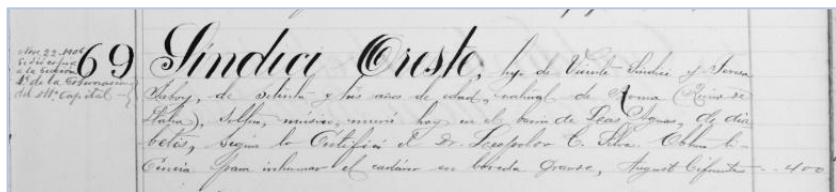 Nov. 22-1906
Se dió copia
a la Sección
1ª de la Gobernación
del Mº Capital
69 Síndici Oreste, hijo de Vicente Síndici y Teresa
de setenta y seis años de edad, natural de Roma (Reino de
Italia), soltero, músico, murió hoy en el barrio de Las Aguas, de dia-
betis, según lo certificó el Dr. Leopoldo C. Silva. Obtuvo li-
cencia para inhumar el cadáver en bóveda grande, August Cifuentes -- 400